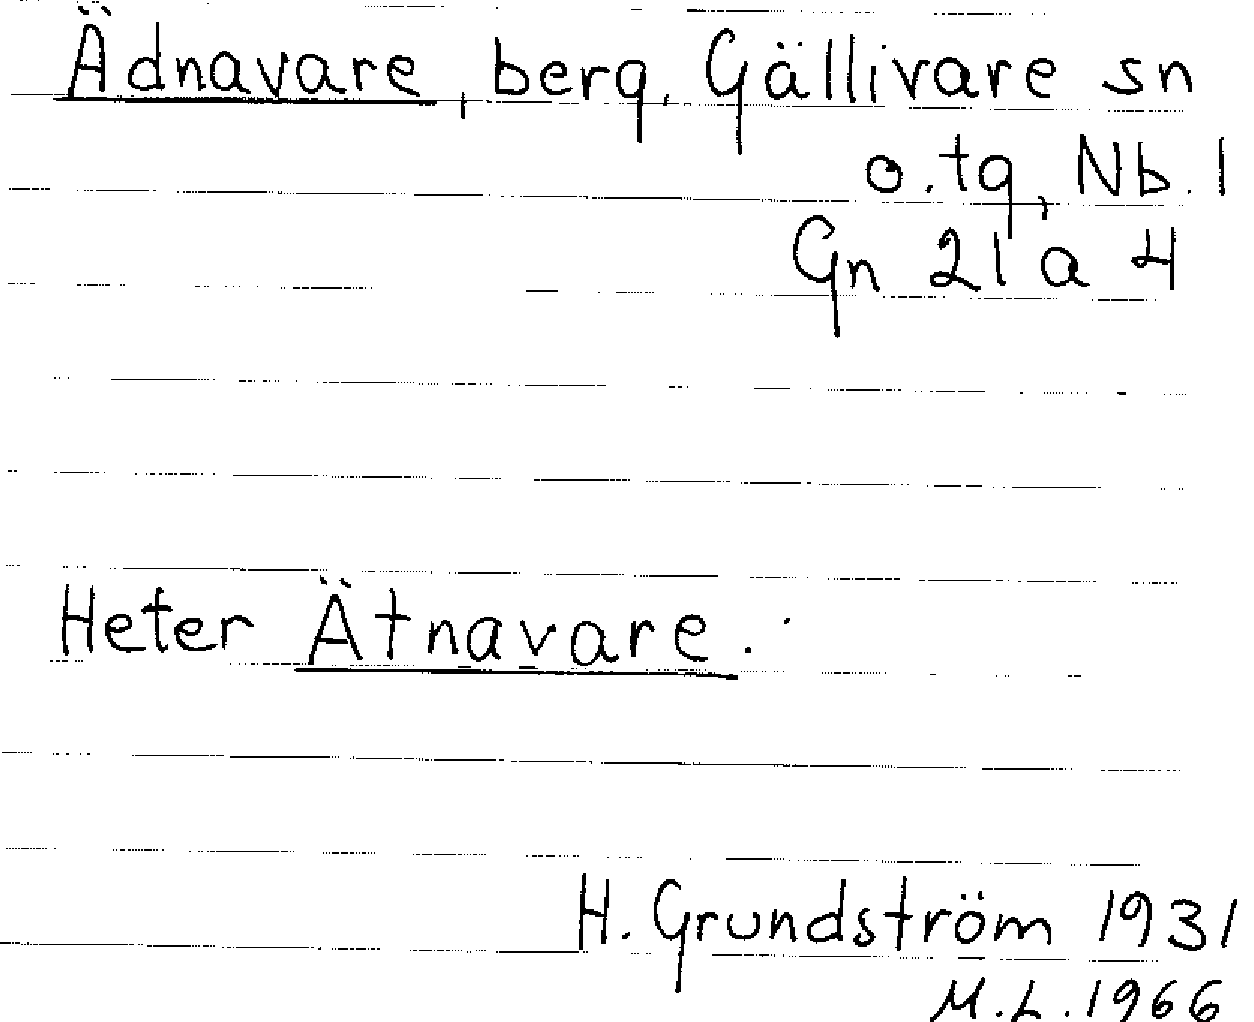 Ädnavare, berg, Gällivare sn
o. tg, Nb. l
Gn 21 a 4
Heter Ätnavare.
H. Grundström 1931
M.L. 1966